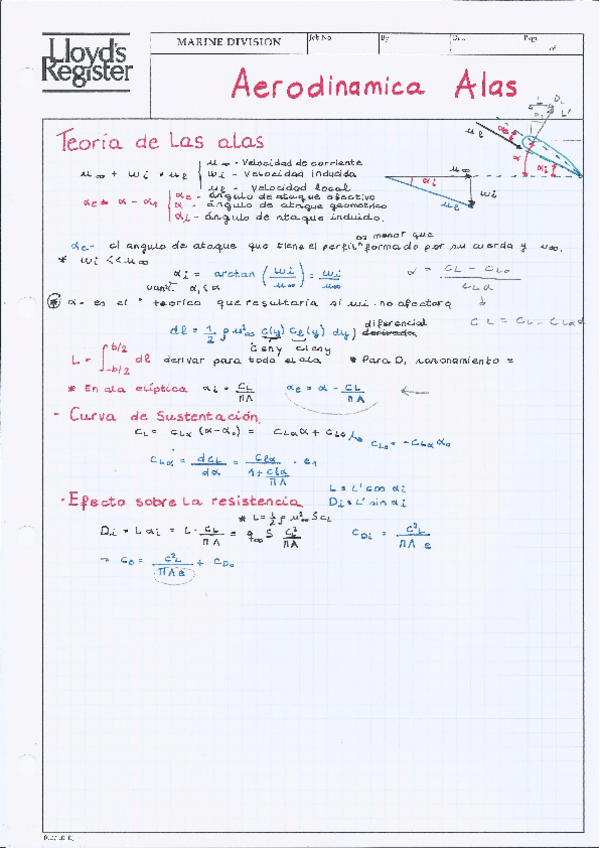 Lloyd's
Register
MARINE DIVISION
Job No
By
Page
of
Aerodinamica Alas
Teoría de las alas
u∞ + wi = uℓ
u∞ - Velocidad de corriente
wi - velocidad inducida
uℓ - velocidad local
αe = α - αi
αe - ángulo de ataque efectivo
α - ángulo de ataque geometrico
αi - ángulo de ataque inducido.
u∞
αi
wi
uℓ
uℓ
αe
α
αi
L
Di
L'
es menor que
αe - el angulo de ataque que tiene el perfil formado por su cuerda y u∞.
* wi << u∞
αi = arctan (wi/u∞) = wi/u∞
α = CL - CL0 / CLα
* α - es el " teorico que resultaria si wi no afectara
dℓ = 1/2 ρ u∞² c(y) cℓ(y) dy
diferencial
derivada
c en y cℓ en y
L = ∫-b/2 b/2 dℓ derivar para todo el ala * Para D, razonamiento =
* En ala elíptica αi = CL/ΠA αe = α - CL/ΠA
- Curva de Sustentación.
CL = CLα (α - α0) = CLα α + CL0
CL0 = -CLα α0
CLα = dCL/dα = Cℓα / 1 + Cℓα/ΠA · e1
- Efecto sobre la resistencia
L = L' cos αi
Di = L' sin αi
* L = 1/2 ρ u∞² S CL
Di = L αi = L · CL/ΠA = q∞ S CL²/ΠA
CDi = C²L/ΠA e
→ CD = C²L/ΠA e + CD0